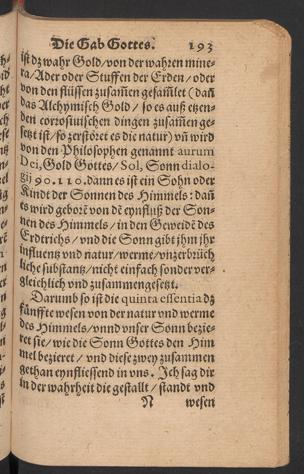 Die Gab Gottes. 193
ist dz wahr Gold/von der wahren mine-
ra/Ader oder Stuffen der Erden/oder
von den flüssen zusam̃en gesam̃let (dañ
das Alchymisch Gold/so es auß etzen-
den corrosiuischen dingen zusam̃e ge-
setzt ist/so zerstöret es die natur) vñ wird
von den Philosophen genannt aurum
Dei, Gold Gottes/Sol, Sonn dialo-
gij 90.110. dann es ist ein Sohn oder
Kindt der Sonnen des Himmels: dañ
es wird geborẽ von dẽ eynfluß der Son-
nen des Himmels/in den Geweidẽ des
Erdtrichs/vnd die Sonn gibt jhm jhr
influentz vnd natur/werme/vnzerbrüch
liche substantz/nicht einfach sonder ver-
gleichlich vnd zusammengesetzt.
Darumb so ist die quinta essentia dz
fünffte wesen von der natur vnd werme
des Himmels/vnnd vnser Sonn bezie-
ret sie/wie die Sonn Gottes den Him
mel bezieret/vnd diese zwey zusammen
gethan eynfliessend in vns. Jch sag dir
in der wahrheit die gestallt/standt vnd
N wesen